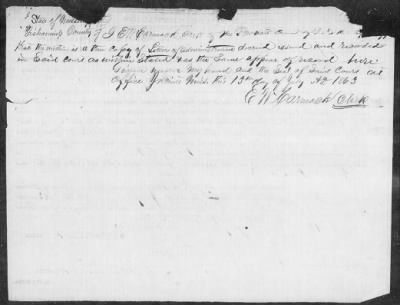 State of
Tishomingo County I E W Carmack Clerk of the Probate Court of
that the within is a true copy of Letters of Administration issued and recorded
in Said court as within Stated has the Same appears of record here
Given under my hand and the Seal of Said Court at
office Miss. this 13th day of A.D. 1863
E W Carmack Clerk